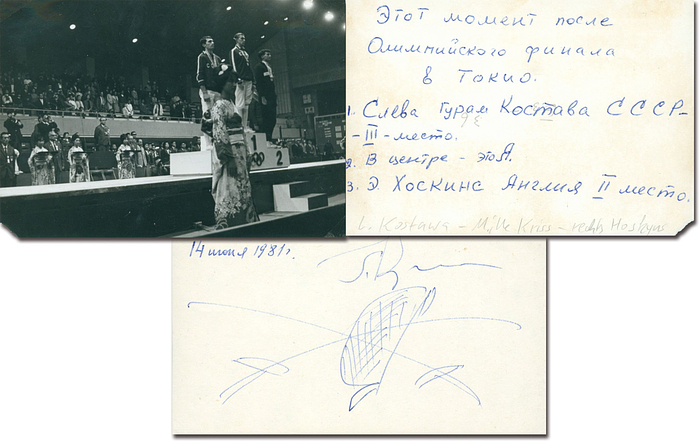 Этот момент после
Олимпийского финала
в Токио.
1. Слева Гурам Костава СССР-
-III-место.
2. В центре - это Я.
3. Э. Хоскинс Англия II место.
L. Kostawa - Mitte Kriss - rechts Hoskyns
1 2
14 июня 1981г.